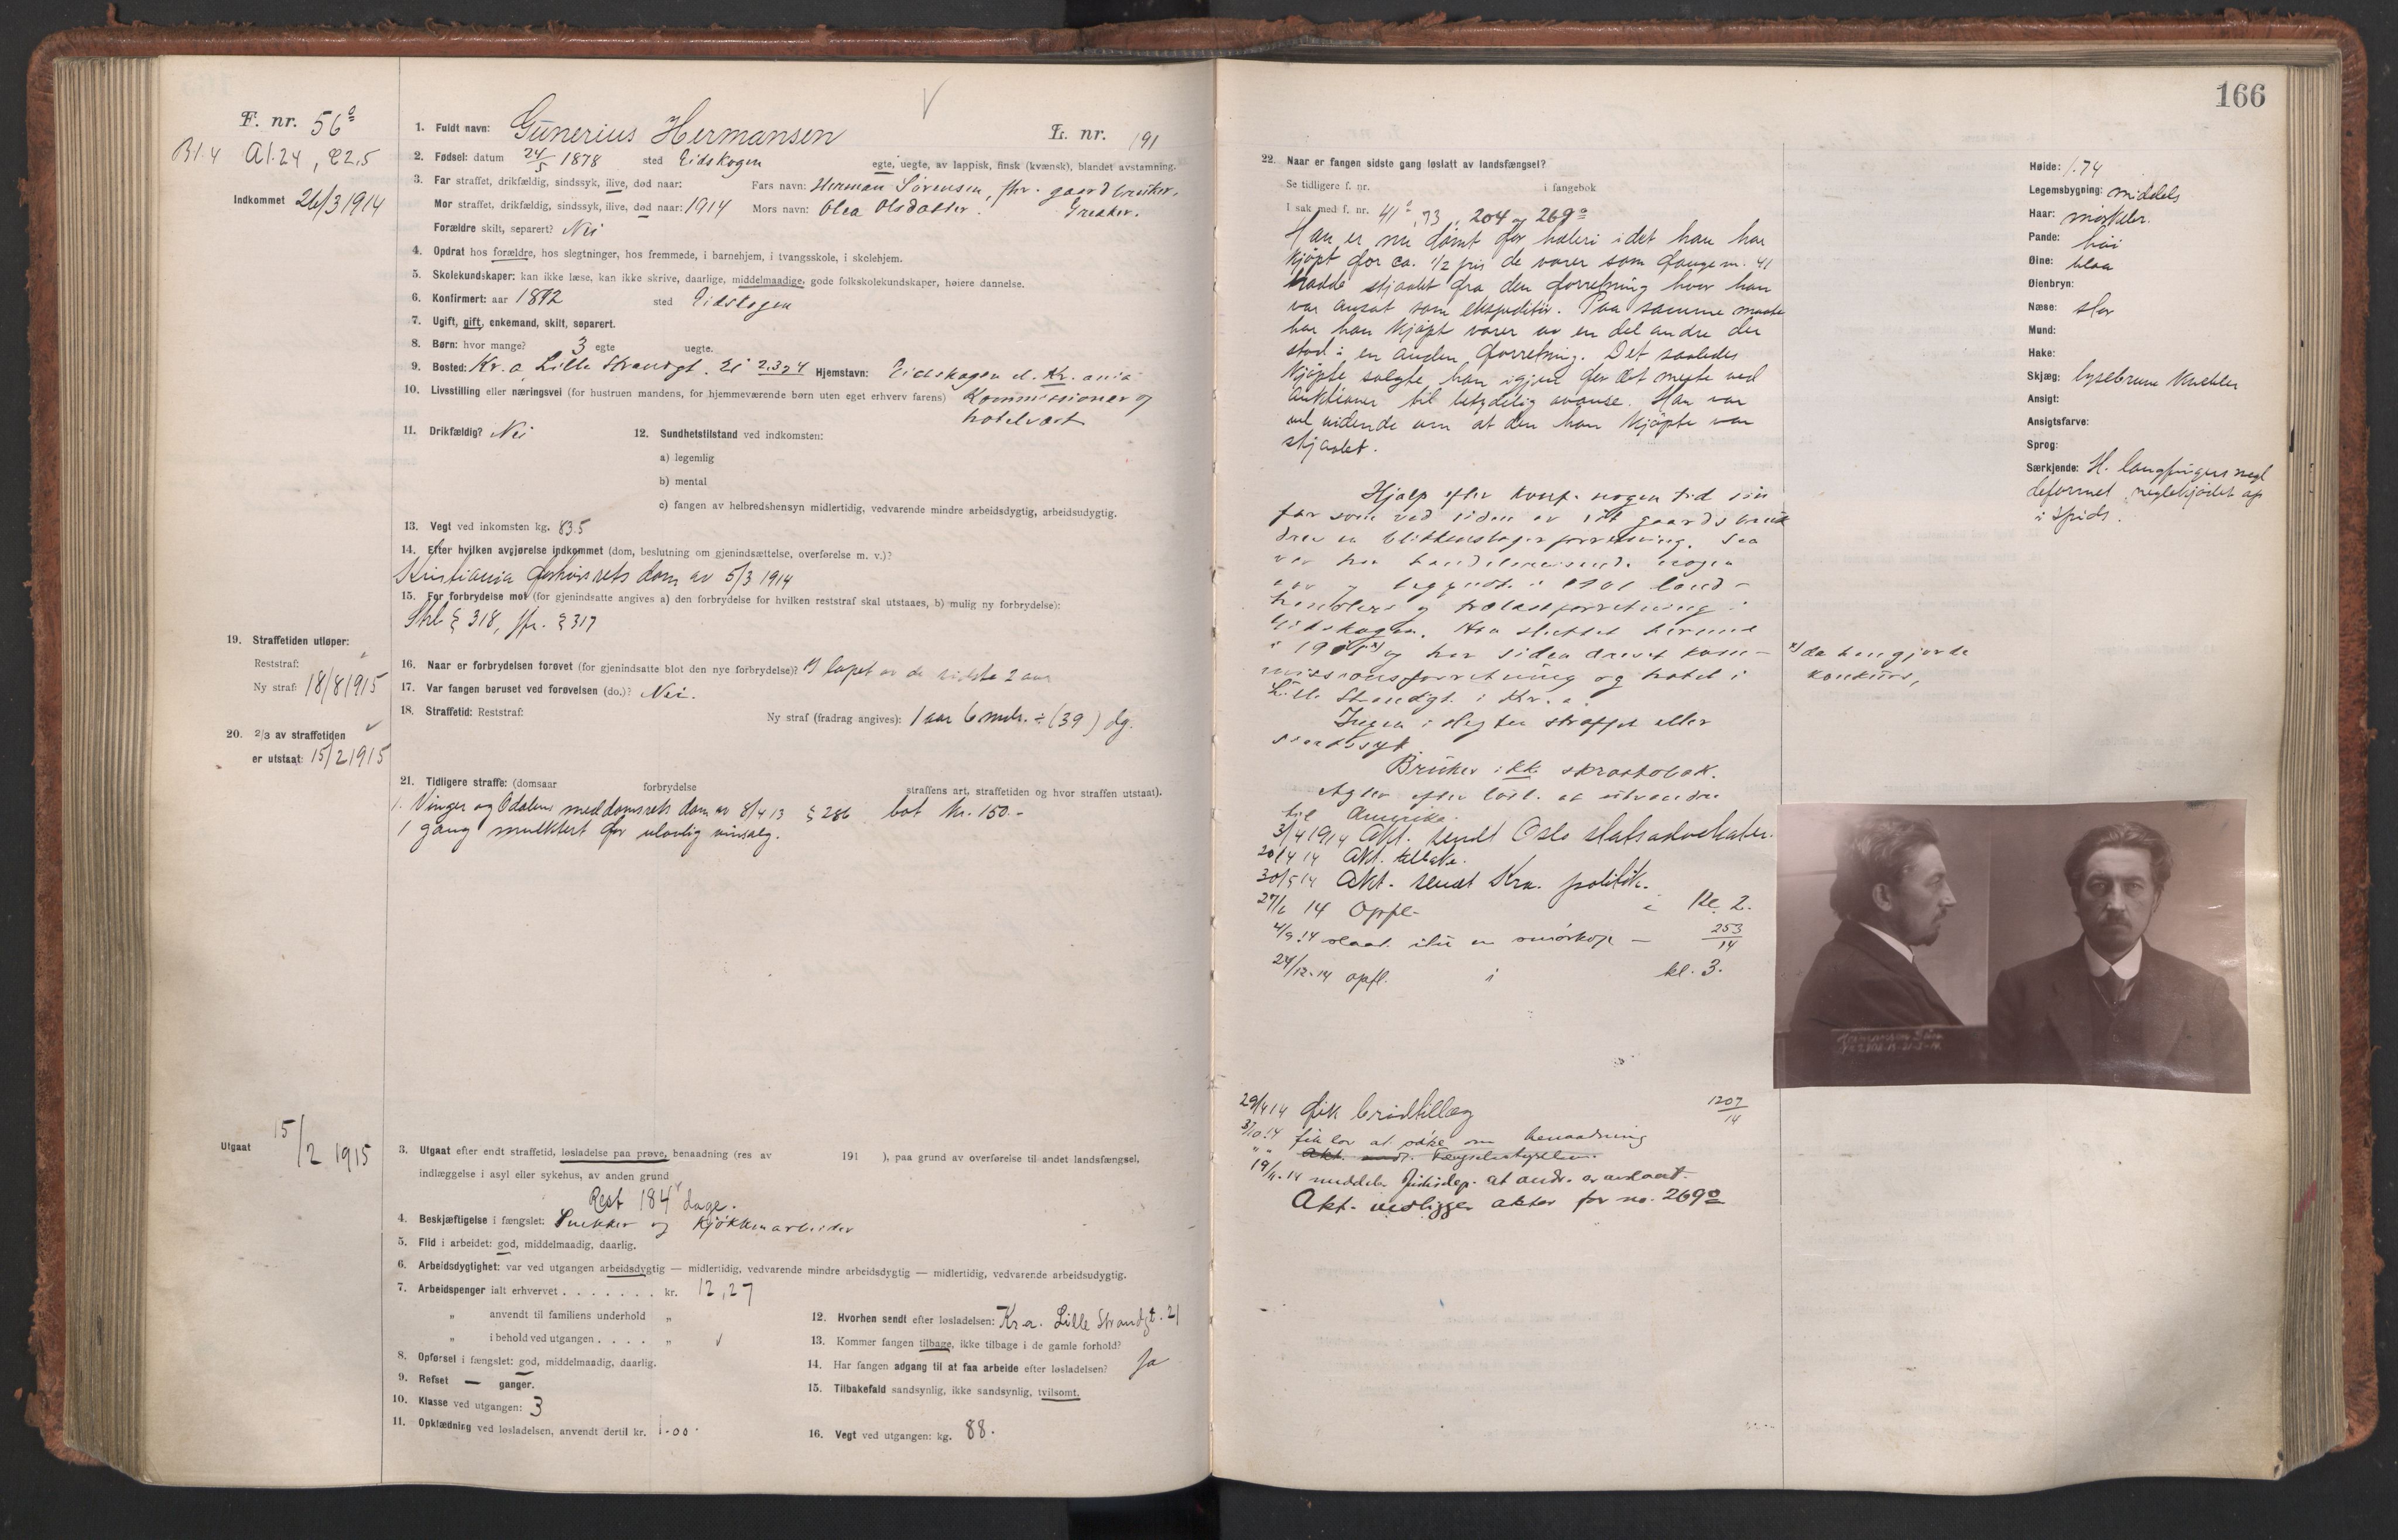 F. nr. 56a
Bl.4 Al.24, C2.5
Indkommet 26/3 1914
1. Fuldt navn: Gunerius Hermansen L. nr. 191
2. Fødsel: datum 24/5 1878 sted Eidskogen egte, uegte, av lappisk, finsk (kvænsk), blandet avstamning.
3. Far straffet, drikfældig, sindssyk, ilive, død naar: Fars navn: Herman Sørensen, fhv. gaardbruker,
Mor straffet, drikfældig, sindssyk, ilive, død naar: 1914 Mors navn: Olea Olsdatter.
Forældre skilt, separert? Nei
4. Opdrat hos forældre, hos slegtninger, hos fremmede, i barnehjem, i tvangsskole, i skolehjem.
5. Skolekundskaper: kan ikke læse, kan ikke skrive, daarlige, middelmaadige, gode folkskolekundskaper, høiere dannelse.
6. Konfirmert: aar 1892 sted Eidskogen
7. Ugift, gift, enkemand, skilt, separert.
8. Børn: hvor mange? 3 egte uegte.
9. Bosted: Kr.a Lille Strandgt. 21 Hjemstavn: Eidskogen el. Kr.ania
10. Livsstilling eller næringsvei (for hustruen mandens, for hjemmeværende børn uten eget erhverv farens) Kommissionær og
hotelvært
11. Drikfældig? Nei 12. Sundhetstilstand ved indkomsten:
a) legemlig
b) mental
c) fangen av helbredshensyn midlertidig, vedvarende mindre arbeidsdygtig, arbeidsudygtig.
13. Vegt ved inkomsten kg. 83.5
14. Efter hvilken avgjørelse indkommet (dom, beslutning om gjenindsættelse, overførelse m. v.)?
Kristiania forhørsrets dom av 5/3 1914
15. For forbrydelse mot (for gjenindsatte angives a) den forbrydelse for hvilken reststraf skal utstaaes, b) mulig ny forbrydelse):
Strl § 318, jfr. § 317
19. Straffetiden utløper:
Reststraf:
Ny straf: 18/8 1915
16. Naar er forbrydelsen forøvet (for gjenindsatte blot den nye forbrydelse)? I løpet av de sidste 2 aar
17. Var fangen beruset ved forøvelsen (do.)? Nei.
18. Straffetid: Reststraf: Ny straf (fradrag angives): 1 aar 6 mdr. ÷ (39) dg.
20. 2/3 av straffetiden
er utstaat: 15/2 1915
21. Tidligere straffe: (domsaar forbrydelse straffens art, straffetiden og hvor straffen utstaat).
1. Vinger og Odalens meddomsrets dom av 8/4 13 § 286 bot kr. 150.-
1 gang mulktert for ulovlig vinsalg.
Utgaat 15/2 1915
3. Utgaat efter endt straffetid, løsladelse paa prøve, benaadning (res av 191 ), paa grund av overførelse til andet landsfængsel,
indlæggelse i asyl eller sykehus, av anden grund
Rest 184 dage.
4. Beskjæftigelse i fængslet: Snekker og Kjøkkenarbeider
5. Flid i arbeidet: god, middelmaadig, daarlig.
6. Arbeidsdygtighet: var ved utgangen arbeidsdygtig — midlertidig, vedvarende mindre arbeidsdygtig — midlertidig, vedvarende arbeidsudygtig.
7. Arbeidspenger ialt erhvervet . . . . . . . kr. 12,27
" anvendt til familiens underhold "
" i behold ved utgangen . . . . "
8. Opførsel i fængslet: god, middelmaadig, daarlig.
9. Refset — ganger.
10. Klasse ved utgangen: 3
11. Opklædning ved løsladelsen, anvendt dertil kr. 1.00
12. Hvorhen sendt efter løsladelsen: Kr.a. Lille Strandgt. 21
13. Kommer fangen tilbage, ikke tilbage i de gamle forhold?
14. Har fangen adgang til at faa arbeide efter løsladelsen? Ja
15. Tilbakefald sandsynlig, ikke sandsynlig, tvilsomt.
16. Vegt ved utgangen: kg. 88.
166
22. Naar er fangen sidste gang løslatt av landsfængsel?
Se tidligere f. nr. i fangebok
I sak med f. nr. 41a, 73, 204 og 269a
Han er nu dømt for hæleri idet han har
kjøpt for ca. 1/2 pris de varer som fange nr. 41
hadde stjaalet fra den forretning hvor han
var ansat som ekspeditør. Paa samme maate
har han kjøpt varer av en del andre der
stod i en anden forretning. Det saaledes
kjøpte solgte han igjen for det meste ved
auktioner til betydelig avanse. Han var
vel vidende om at den han kjøpte var
stjaalet.
Hjalp efter konf. nogen tid sin
far som ved siden av sit gaardsbruk
drev en blikkenslagerforretning. Saa
var han handelsreisende nogen
aar og begyndte i 1901 land-
handleri og trælastforretning i
Eidskogen. Han sluttet hermed
og har siden drevet kom-
missionsforretning og hotel i
Lille Strandgt. i Kr.a.
x) da han gjorde
konkurs,
Ingen i slegten straffet eller
sindssyk.
Bruker ikke skraatobak.
Agter efter løsl. at utvandre
til Amerika.
3/4 1914 Akt. sendt Oslo statsadvokater.
20/4 14 Akt. tilbake.
30/5 14 Akt. sendt Kra. politik.
27/6 14 Oppfl. i kl. 2.
4/9.14 slaat itu en smørkop — 253/14
24/12.14 opfl. i kl. 3.
29/4 14 fik brødtillæg 1207/14
3/10.14 fik lov at søke om benaadning
" " Akt. sendt Fængselsstyrelsen.
19/11.14 meddeler Justisdep. at andr. er avslaat.
Akt. vedligger akter for no. 269a
Høide: 1.74
Legemsbygning: middels
Haar: mørkebr.
Pande: høi
Øine: blaa
Øienbryn:
Næse: stor
Mund:
Hake:
Skjæg: lysebrune knebler
Ansigt:
Ansigtsfarve:
Sprog:
Særkjende: H. langfingers negl
deformet, neglekjødet op
i spids.